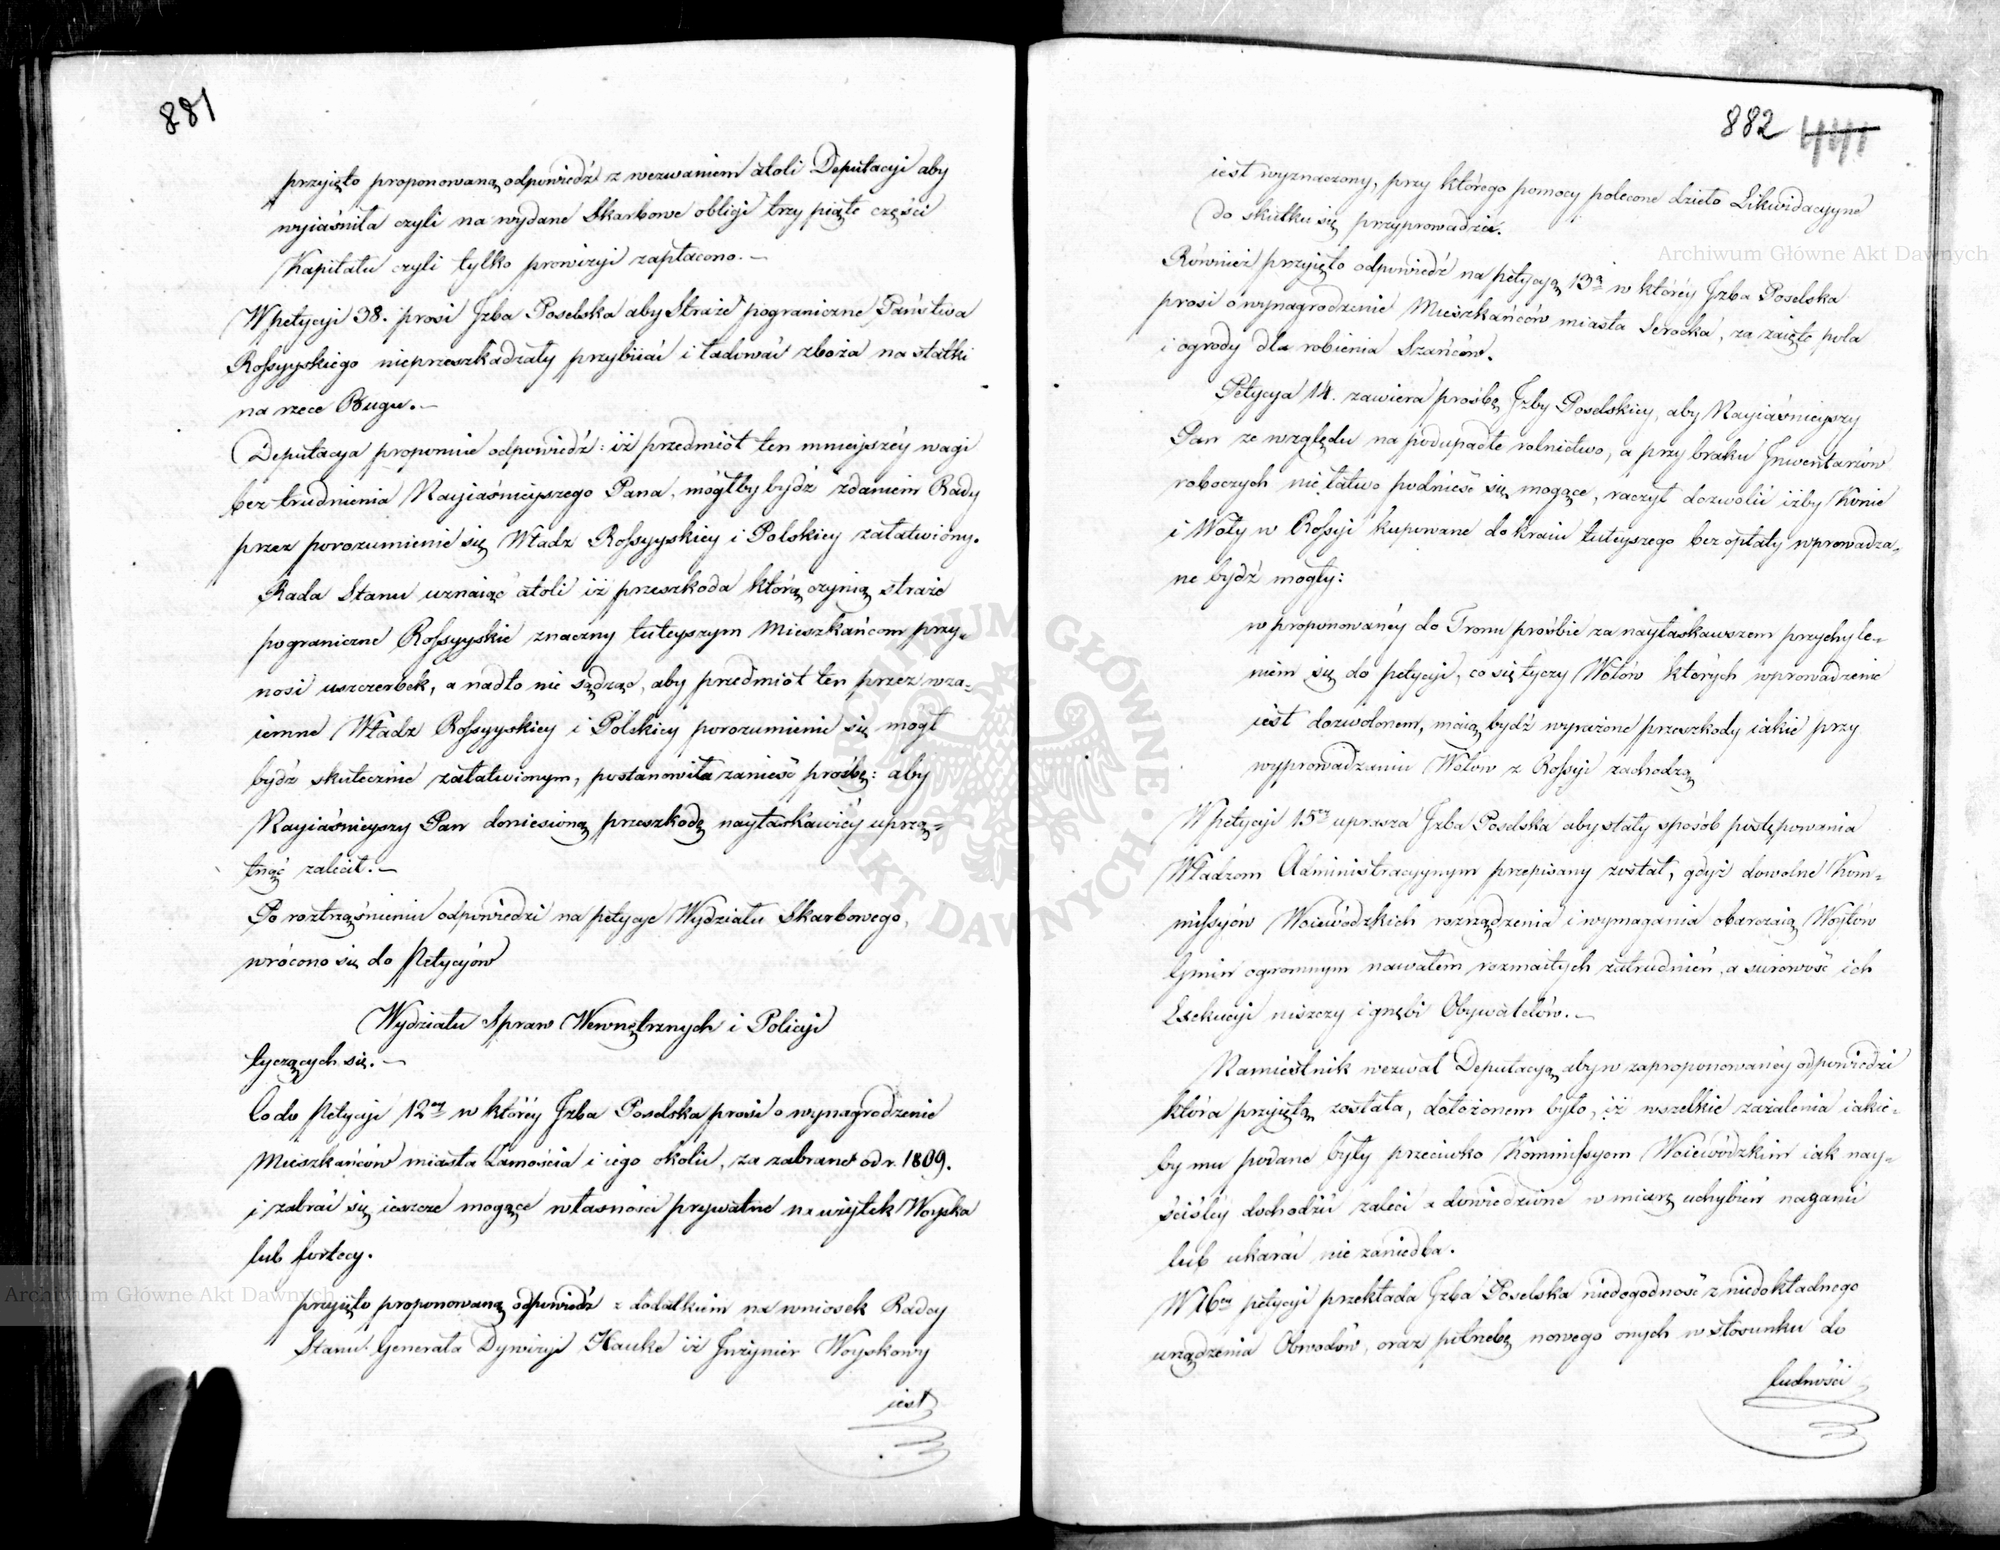 881
przyięto proponowaną odpowiedź z wezwaniem atoli Deputacyi aby
wyiaśniła czyli na wydane Skarbowe obligi trzy piąte części
Kapitału czyli tylko prowizyi zapłacono.—
W petycyi 38. prosi Izba Poselska aby Straże pograniczne Państwa
Rossyyskiego nieprzeszkadzały przybiiać i ładować zboża na statki
na rzece Bugu.—
Deputacya proponuie odpowiedź: iż przedmiot ten mnieyszéy wagi
bez trudnienia Nayiaśnieyszego Pana, mógłby bydź zdaniem Rady
przez porozumienie się Władz Rossyyskiey i Polskiey załatwiony.
Rada Stanu uznaiąc atoli iż przeszkoda którą czynią straże
pograniczne Rossyyskie znaczny tuteyszym Mieszkańcom przy=
nosi uszczerbek, a nadto nie sądząc, aby przedmiot ten przez wza=
iemne Władz Rossyyskiey i Polskiey porozumienie się mógł
bydź skutecznie załatwionym, postanowiła zanieść prośbę: aby
Nayiaśnieyszy Pan doniesioną przeszkodę nayłaskawiéy uprzą=
tnąć zalecił.—
Po roztrząśnieniu odpowiedzi na petycye Wydziału Skarbowego,
wrócono się do Petycyów
Wydziału Spraw Wewnętrznych i Policyi
tyczących się.—
Co do Petycyi 12ey w któréy Izba Poselska prosi o wynagrodzenie
Mieszkańców miasta Zamościa i iego okolic, za zabrane od r. 1809.
i zabrać się ieszcze mogące własności prywatne na użytek Woyska
lub fortecy.
przyięto proponowaną odpowiedź z dodatkiem na wniosek Radcy
Stanu Generała Dywizyi Hauke iż Inżynier Woyskowy
iest
882 441
iest wyznaczony, przy którego pomocy polecone dzieło Likwidacyyne
do skutku się przyprowadzi.
Również przyięto odpowiedź na petycyą 13ą w któréy Izba Poselska
prosi o wynagrodzenie Mieszkańców miasta Serocka, za zaięte pola
i ogrody dla robienia Szańców.
Petycya 14. zawiera prośbę Izby Poselskiey, aby Nayiaśnieyszy
Pan ze względu na podupadłe rolnictwo, a przy braku Inwentarzów
roboczych nie łatwo podnieść się mogące, raczył dozwolić iżby Konie
i Woły w Rossyi kupowane do kraiu tuteyszego bez opłaty wprowadza=
ne bydź mogły:
w proponowanéy do Tronu prośbie za nayłaskawszem przychyle=
niem się do petycyi, co się tyczy Wołów których wprowadzenie
iest dozwolonem, maią bydź wyrażone przeszkody iakie przy
wyprowadzaniu Wołów z Rossyi zachodzą
W petycyi 15ey uprasza Izba Poselska aby stały sposób postępowania
Władzom Administracyynym przepisany został, gdyż dowolne Kom=
missyów Woiewódzkich rozrządzenia i wymagania obarczaią Woytów
Gmin ogromnym nawałem rozmaitych zatrudnień, a surowość ich
Exekucyi niszczy i gnębi Obywatelów.—
Namiestnik wezwał Deputacyą aby w zaproponowanéy odpowiedzi
która przyiętą została, dołożonem było, iż wszelkie zażalenia iakie=
by mu podane były przeciwko Kommissyom Woiewódzkim iak nay=
ściśléy dochodzić zaleci a dowiedzione w miarę uchybień naganić
lub ukarać nie zaniedba.
W 16ey petycyi przekłada Izba Poselska niedogodność z niedokładnego
urządzenia Obwodów, oraz potrzebę nowego onych w stosunku do
ludności
Archiwum Główne Akt Dawnych
Archiwum Główne Akt Dawnych
ARCHIWUM GŁÓWNE AKT DAWNYCH